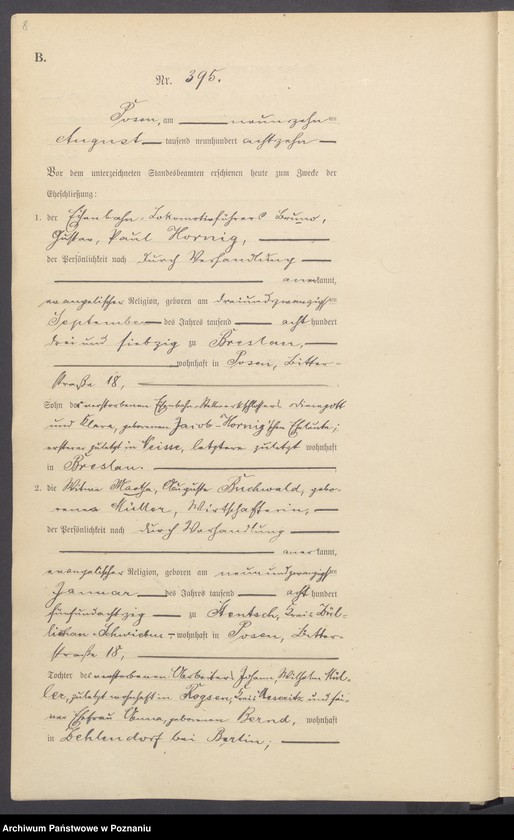 8
B.
Nr. 395.
Posen, am neunzehnten
August tausend neunhundert achtzehn
Vor dem unterzeichneten Standesbeamten erschienen heute zum Zwecke der
Eheschließung:
1. der Eisenbahn-Lokomotivführer Bruno,
Gustav, Paul Hornig,
der Persönlichkeit nach durch Verhandlung
anerkannt,
evangelischer Religion, geboren am dreiundzwanzigsten
September des Jahres tausend acht hundert
dreiundsiebzig zu Breslau,
wohnhaft in Posen, Bitter-
straße 18,
Sohn des verstorbenen Eisenbahn- Dienegott
und Klara, geborenen Jacob-Hornig'schen Eheleute;
ersterer zuletzt in Neisse, letztere zuletzt wohnhaft
in Breslau.
2. die Witwe Martha, Auguste Buchwald, gebo-
rene Müller, Wirtschafterin,
der Persönlichkeit nach durch Verhandlung
anerkannt,
evangelischer Religion, geboren am neunundzwanzigsten
Januar des Jahres tausend acht hundert
fünfundachtzig zu Hentsch, Kreis Zül-
lichau-Schwiebus wohnhaft in Posen, Bitter-
straße 18,
Tochter des verstorbenen Arbeiters Johann, Wilhelm Mül-
ler, zuletzt wohnhaft in Rogsen, Kreis Meseritz und sei-
ner Ehefrau Anna, geborenen Bernd, wohnhaft
in Zehlendorf bei Berlin;
Archiwum Państwowe w Poznaniu